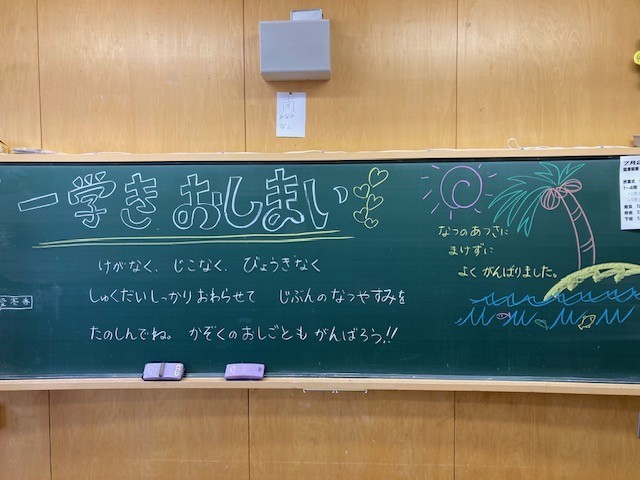 一学き おしまい
けがなく、じこなく、びょうきなく
しゅくだいしっかりおわらせて じぶんのなつやすみを
たのしんでね。かぞくのおしごともがんばろう!!
なつのあつさに
まけずに
よくがんばりました。